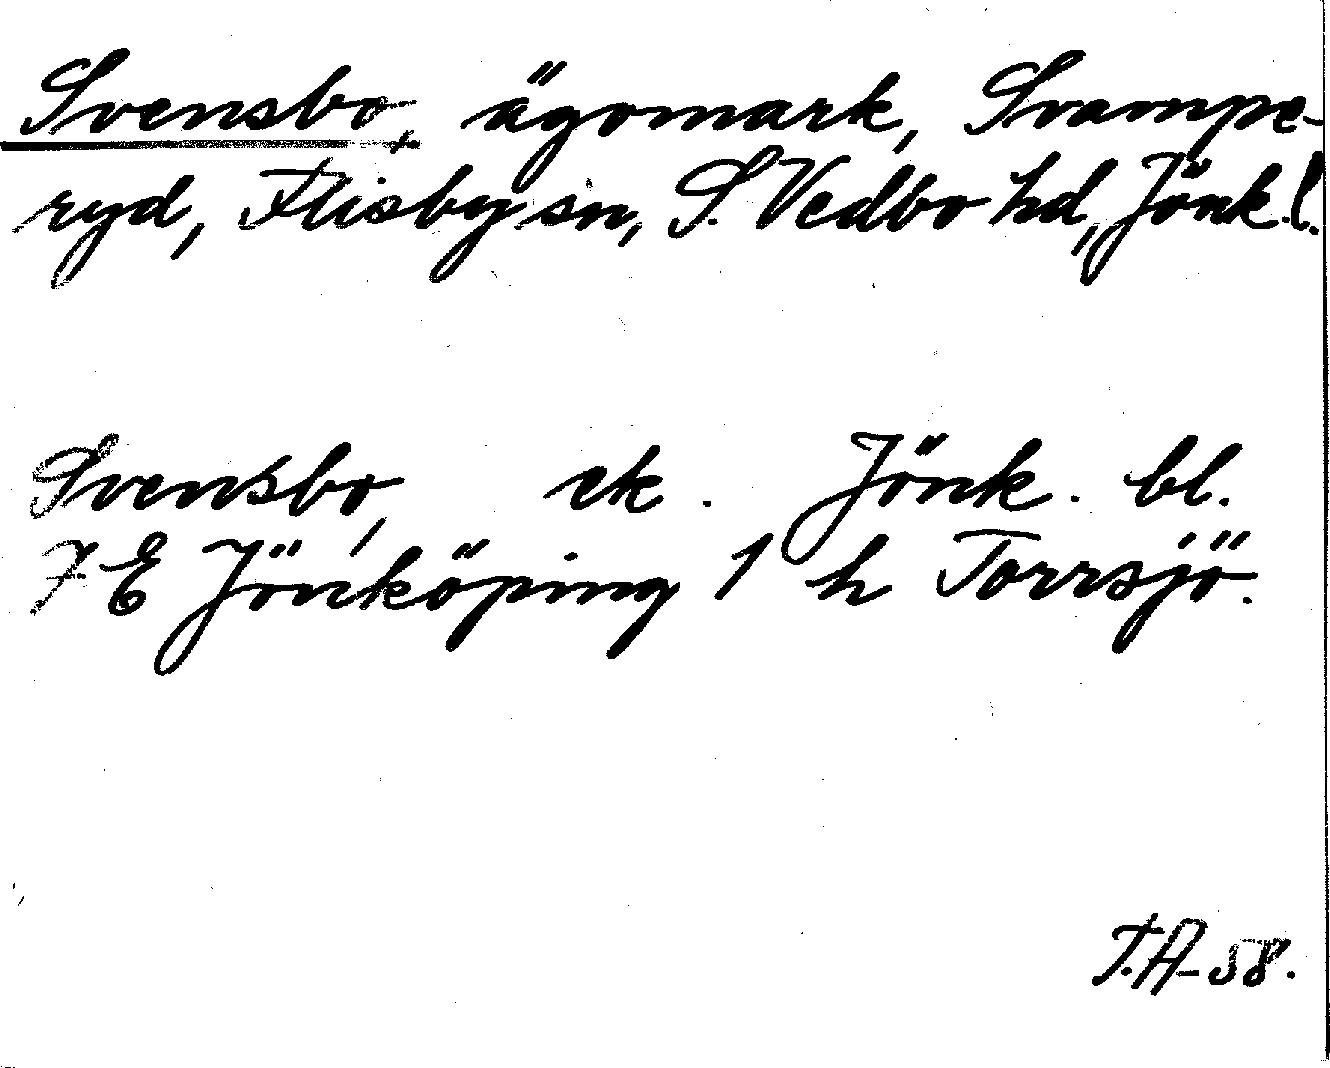 Svensbo, ägomark, Svampe-
ryd, Flisby sn, S. Vedbo hd, Jönk. l.
Svensbo, ek. Jönk. bl.
7 E Jönköping 1 h Torrsjö.
T.A-58.